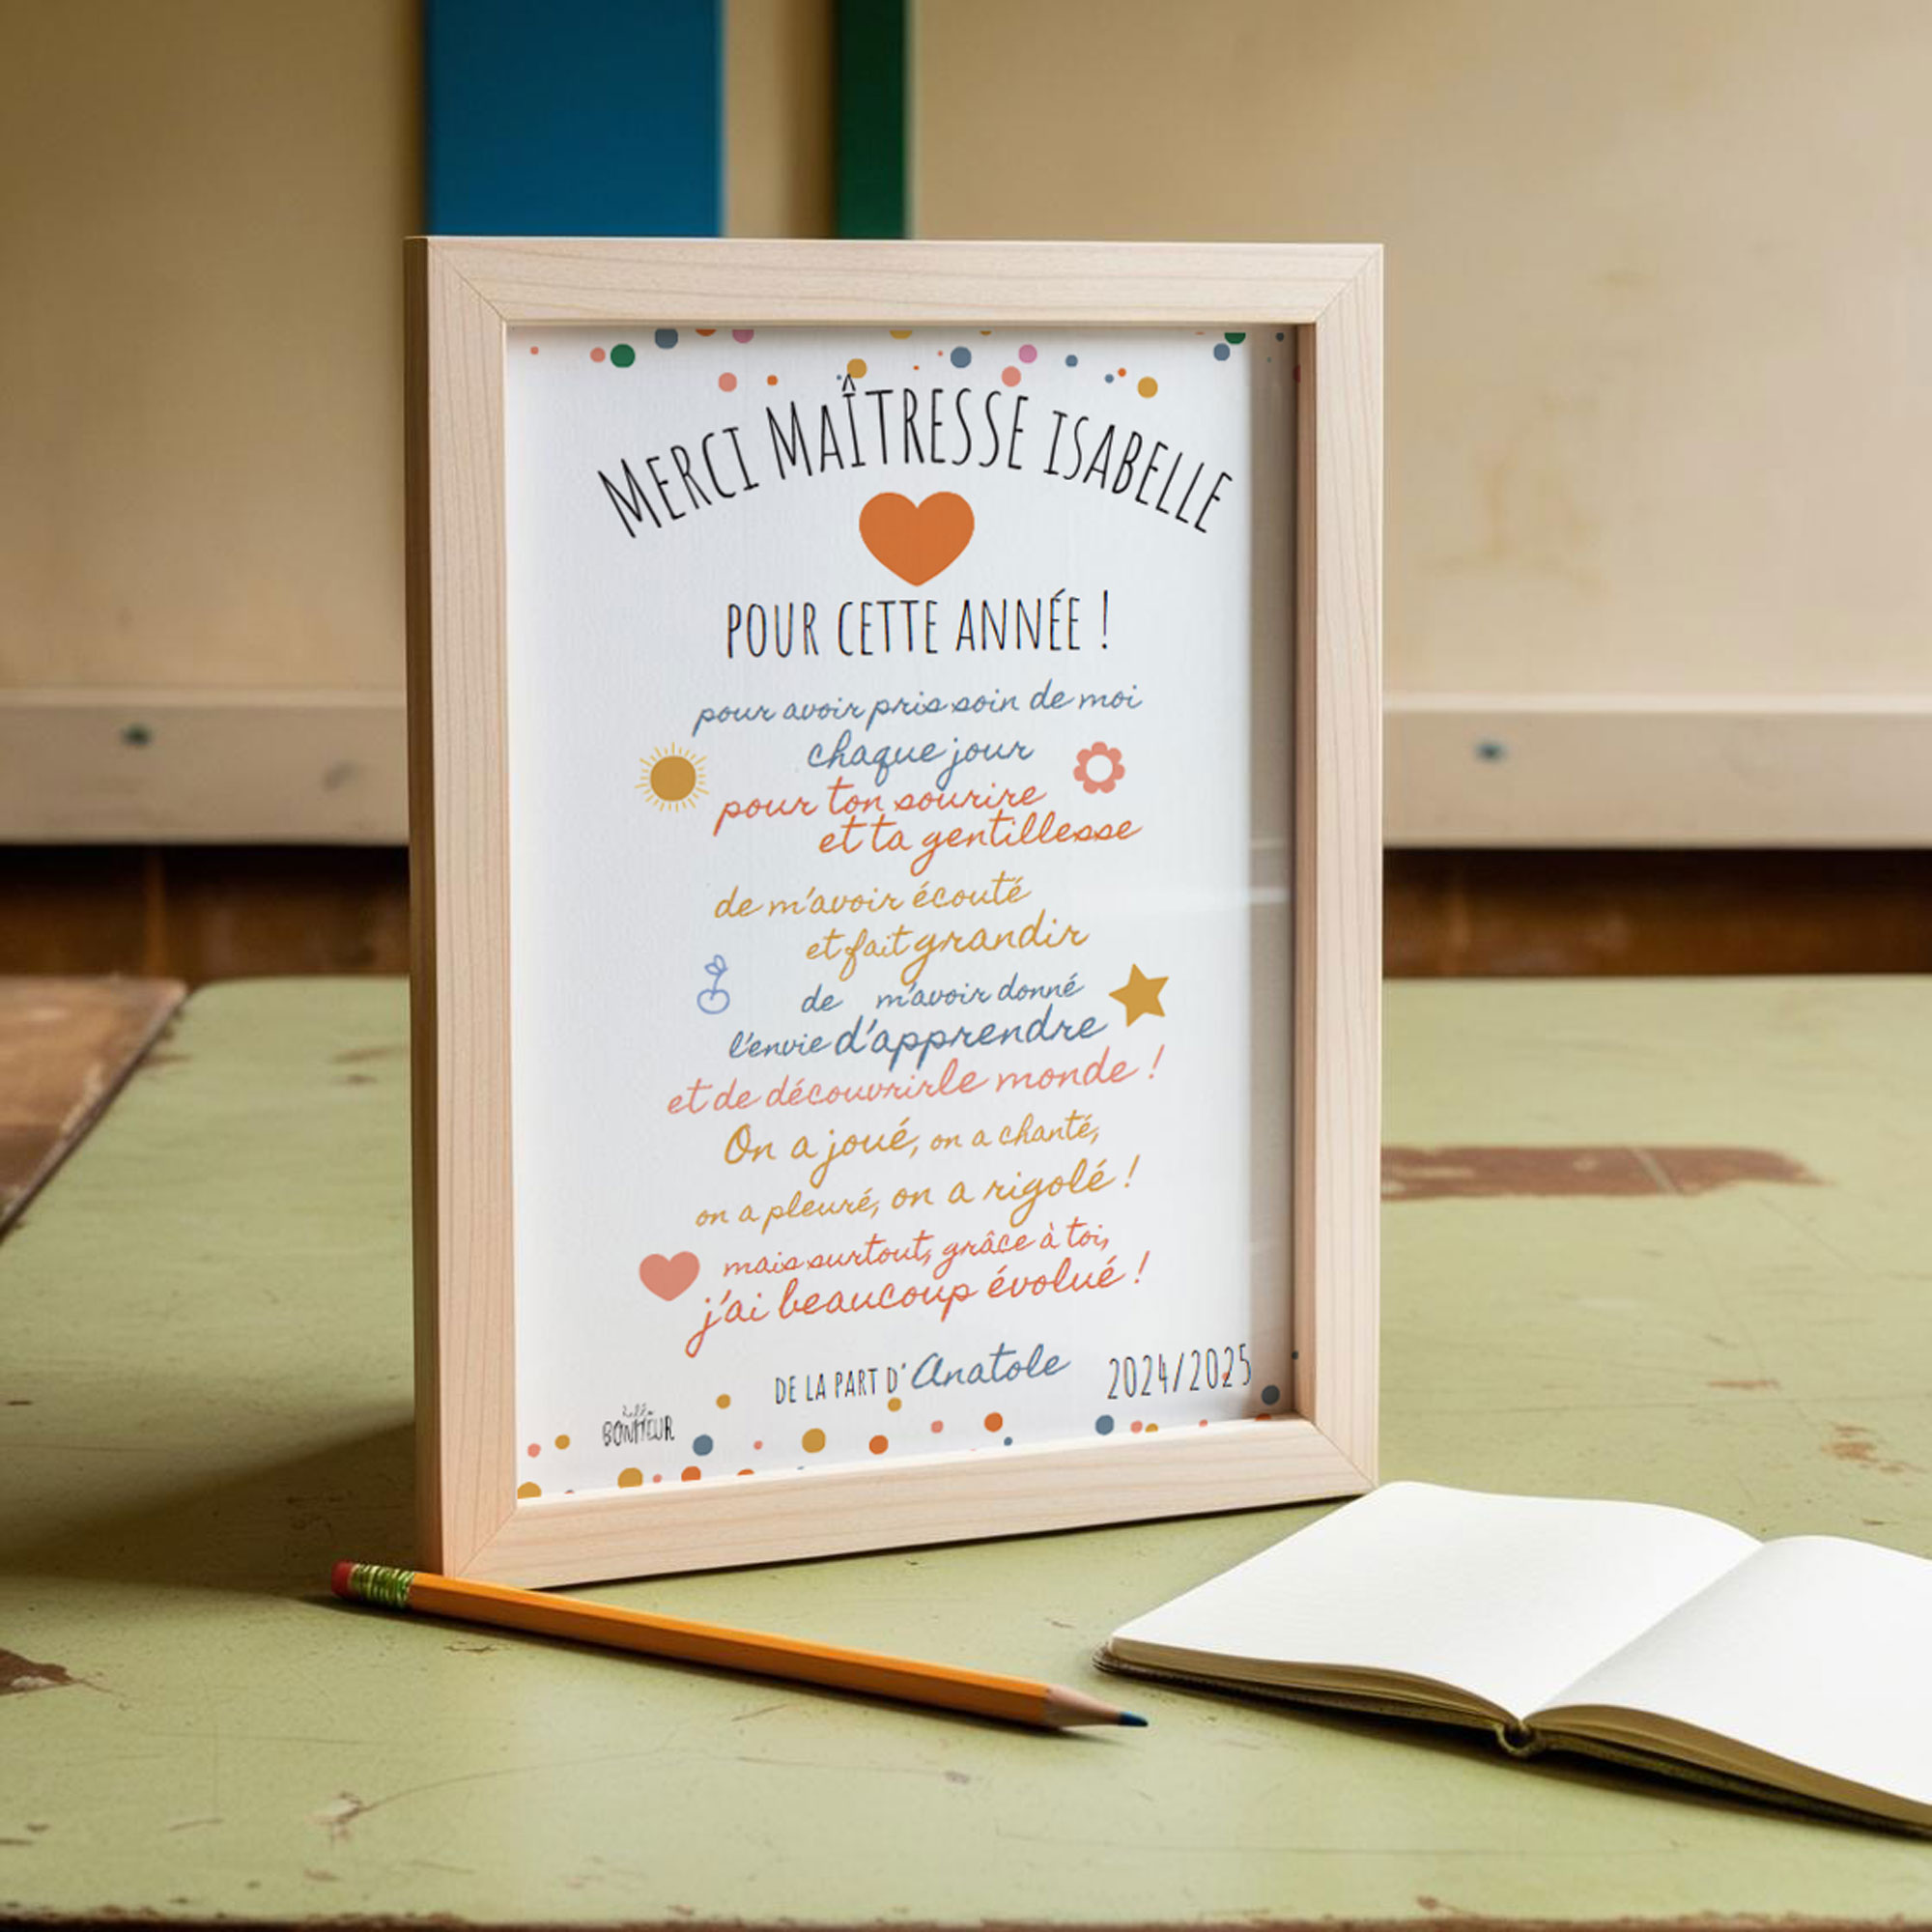 MERCI MAÎTRESSE ISABELLE
POUR CETTE ANNÉE !
pour avoir pris soin de moi
chaque jour
pour ton sourire
et ta gentillesse
de m'avoir écouté
et fait grandir
de m'avoir donné
l'envie d'apprendre
et de découvrir le monde !
On a joué, on a chanté,
on a pleuré, on a rigolé !
mais surtout, grâce à toi,
j'ai beaucoup évolué !
DE LA PART D' Anatole 2024/2025
BONHEUR